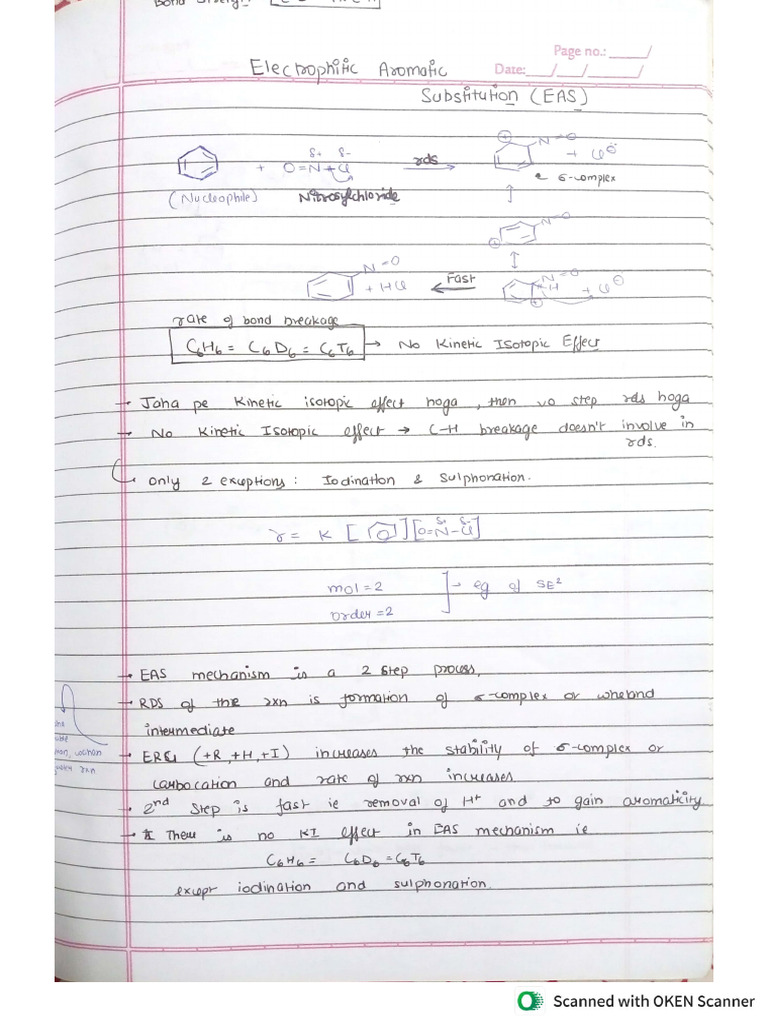 Page no.: ____/
Date: ___/___/_____/
Electrophilic Aromatic
Substitution (EAS)
δ+ δ-
+ O=N+Cl
rds
N=O
+ Cl⊖
σ-complex
(Nucleophile) Nitrosylchloride
N=O
N=O
+ HCl
Fast
N=O
H + Cl⊖
rate of bond breakage
C6H6 = C6D6 = C6T6 → No Kinetic Isotopic Effect
→ Jaha pe Kinetic isotopic effect hoga, then vo step rds hoga
→ No Kinetic Isotopic effect → C-H breakage doesn't involve in
rds.
only 2 exceptions: Iodination & Sulphonation.
r = K [ ] [O=N-Cl]
δ+ δ-
mol = 2
order = 2
→ eg of SE²
→ EAS mechanism is a 2 step process,
→ RDS of the rxn is formation of σ-complex or wheland
intermediate
→ ERG (+R, +H, +I) increases the stability of σ-complex or
carbocation and rate of rxn increases.
→ 2nd step is fast ie removal of H+ and to gain aromaticity
→ There is no KI effect in EAS mechanism ie
C6H6 = C6D6 = C6T6
except iodination and sulphonation.
Scanned with OKEN Scanner